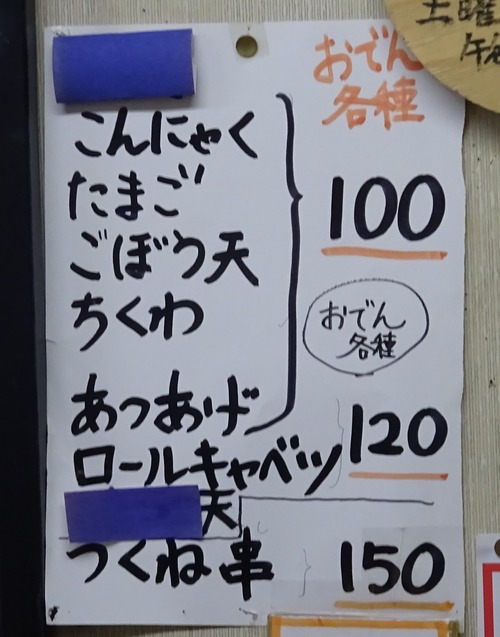 おでん
各種
こんにゃく
たまご
ごぼう天
ちくわ
100
おでん
各種
あつあげ
ロールキャベツ
120
天
つくね串
150
土曜